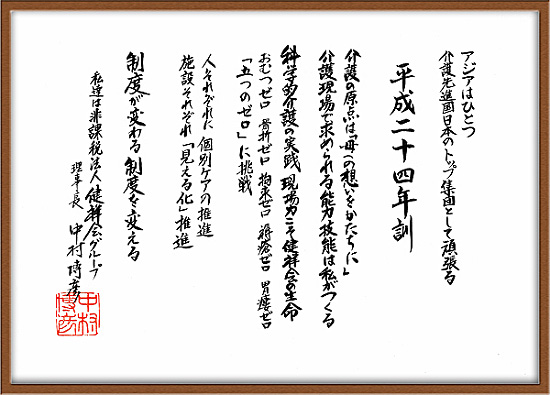 アジアはひとつ
介護先進国日本のトップ集団として頑張る
平成二十四年訓
介護の原点は「母への想いをかたちに」
介護現場で求められる能力技能は私がつくる
科学的介護の実践 現場力こそ健祥会の生命
おむつゼロ 骨折ゼロ 拘束ゼロ 褥瘡ゼロ 胃瘻ゼロ
「五つのゼロ」に挑戦
人それぞれに 個別ケアの推進
施設それぞれ「見える化」推進
制度が変わる 制度を変える
私達は非課税法人健祥会グループ
理事長 中村博彦
中村
博彦